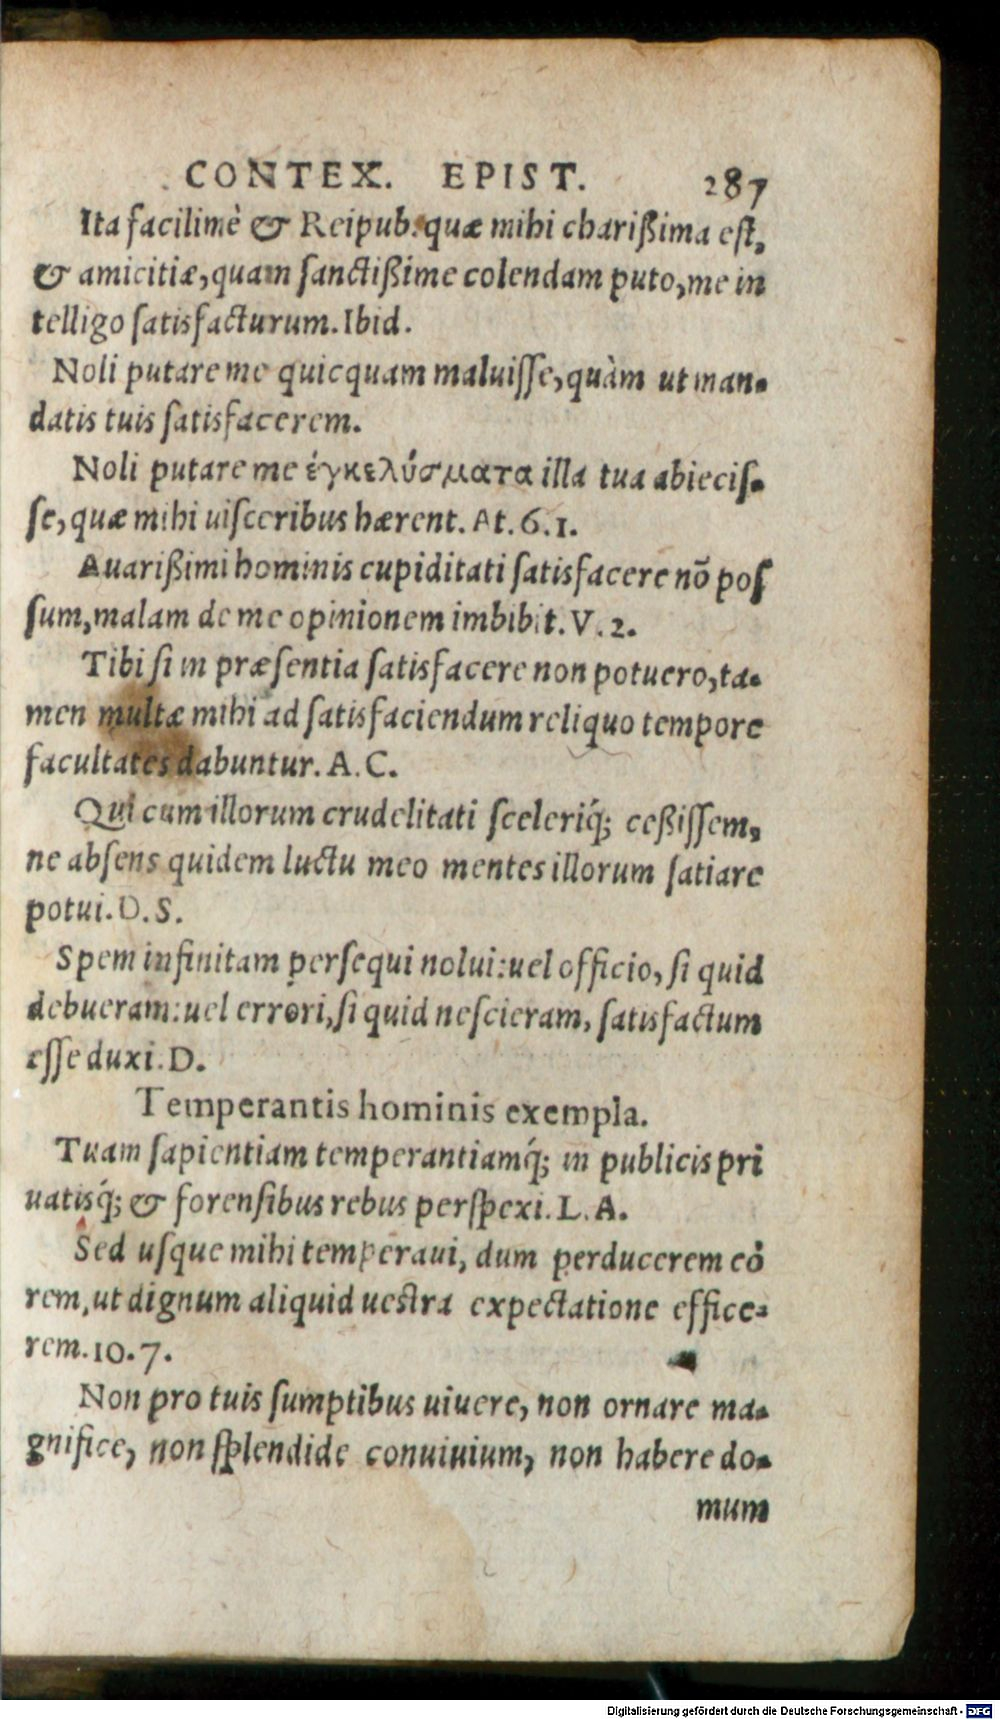 CONTEX. EPIST. 287
Ita facilimè & Reipub. quæ mihi charißima eſt,
& amicitiæ, quam ſanctißime colendam puto, me in
telligo ſatisfacturum. Ibid.
Noli putare me quicquam maluiſſe, quàm ut man-
datis tuis ſatisfacerem.
Noli putare me ἐγκελύσματα illa tua abieciſ-
ſe, quæ mihi uiſceribus hærent. At. 6. 1.
Auarißimi hominis cupiditati ſatisfacere nõ poſ
ſum, malam de me opinionem imbibit. V. 2.
Tibi ſi in præſentia ſatisfacere non potuero, ta-
men multæ mihi ad ſatisfaciendum reliquo tempore
facultates dabuntur. A. C.
Qui cum illorum crudelitati ſceleriq́; ceßiſſem,
ne abſens quidem luctu meo mentes illorum ſatiare
potui. D. S.
Spem infinitam perſequi nolui: uel officio, ſi quid
debueram: uel errori, ſi quid neſcieram, ſatisfactum
eſſe duxi. D.
Temperantis hominis exempla.
Tuam ſapientiam temperantiamq́; in publicis pri
uatisq́; & forenſibus rebus perſpexi. L. A.
Sed uſque mihi temperaui, dum perducerem eò
rem, ut dignum aliquid ueſtra expectatione effice-
rem. 10. 7.
Non pro tuis ſumptibus uiuere, non ornare ma-
gnifice, non ſplendide conuiuium, non habere do-
mum
Digitalisierung gefördert durch die Deutsche Forschungsgemeinschaft - DFG